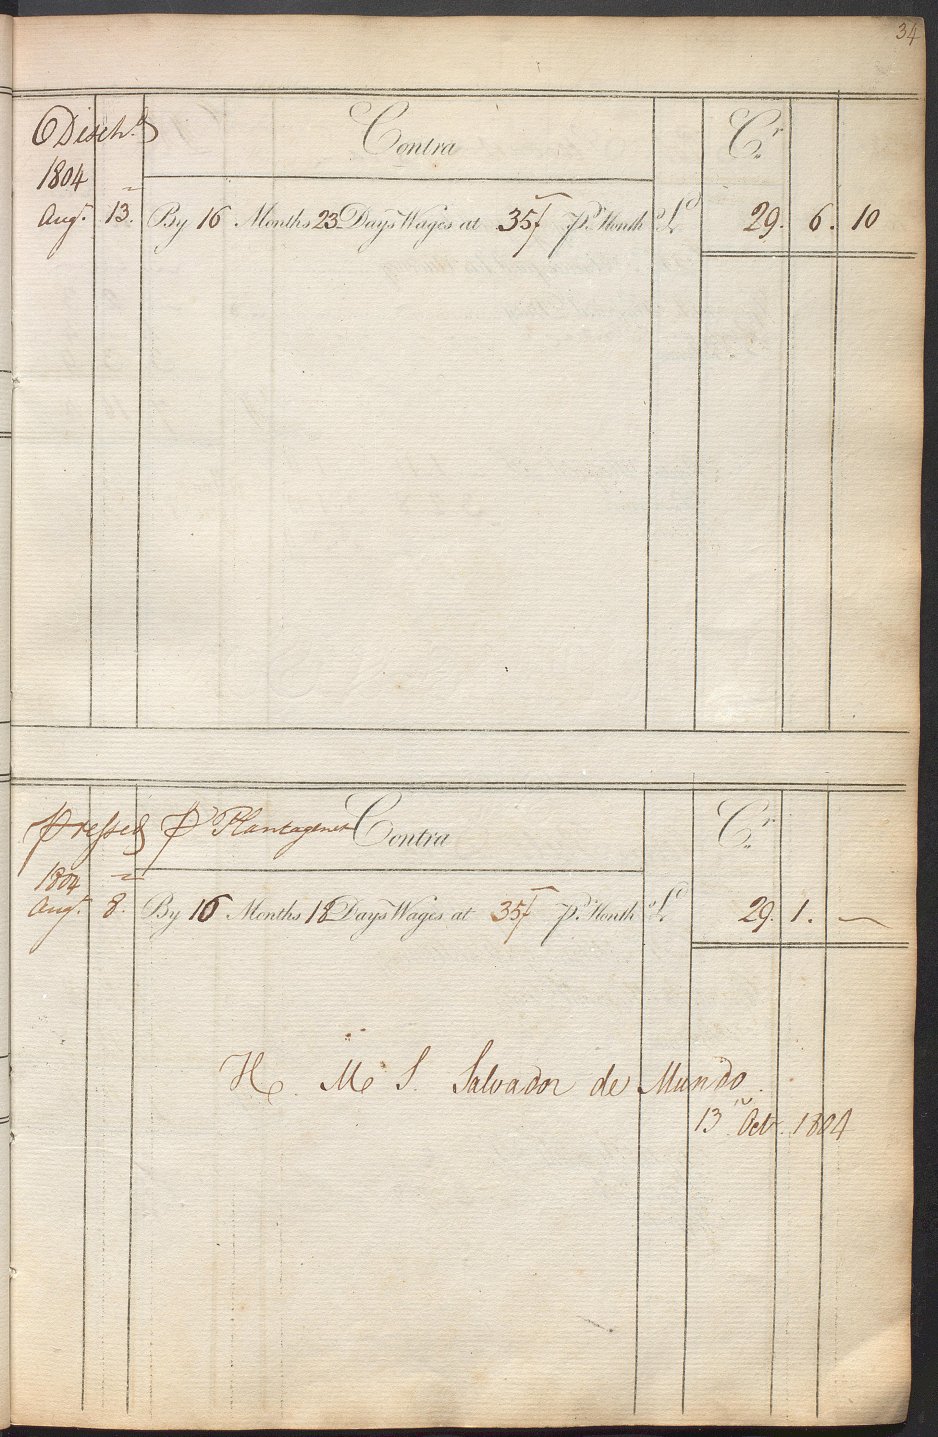 34
Disch.d Contra Cr
1804
Augt. 13. By 16 Months 23 Days Wages at 35/ p. Month £ 29. 6. 10
Pressed p Plantagenet Contra Cr
1804
Augt. 8. By 16 Months 18 Days Wages at 35/ p. Month £ 29. 1. —
H. M. S. Salvador de Mundo
13 Octr. 1804